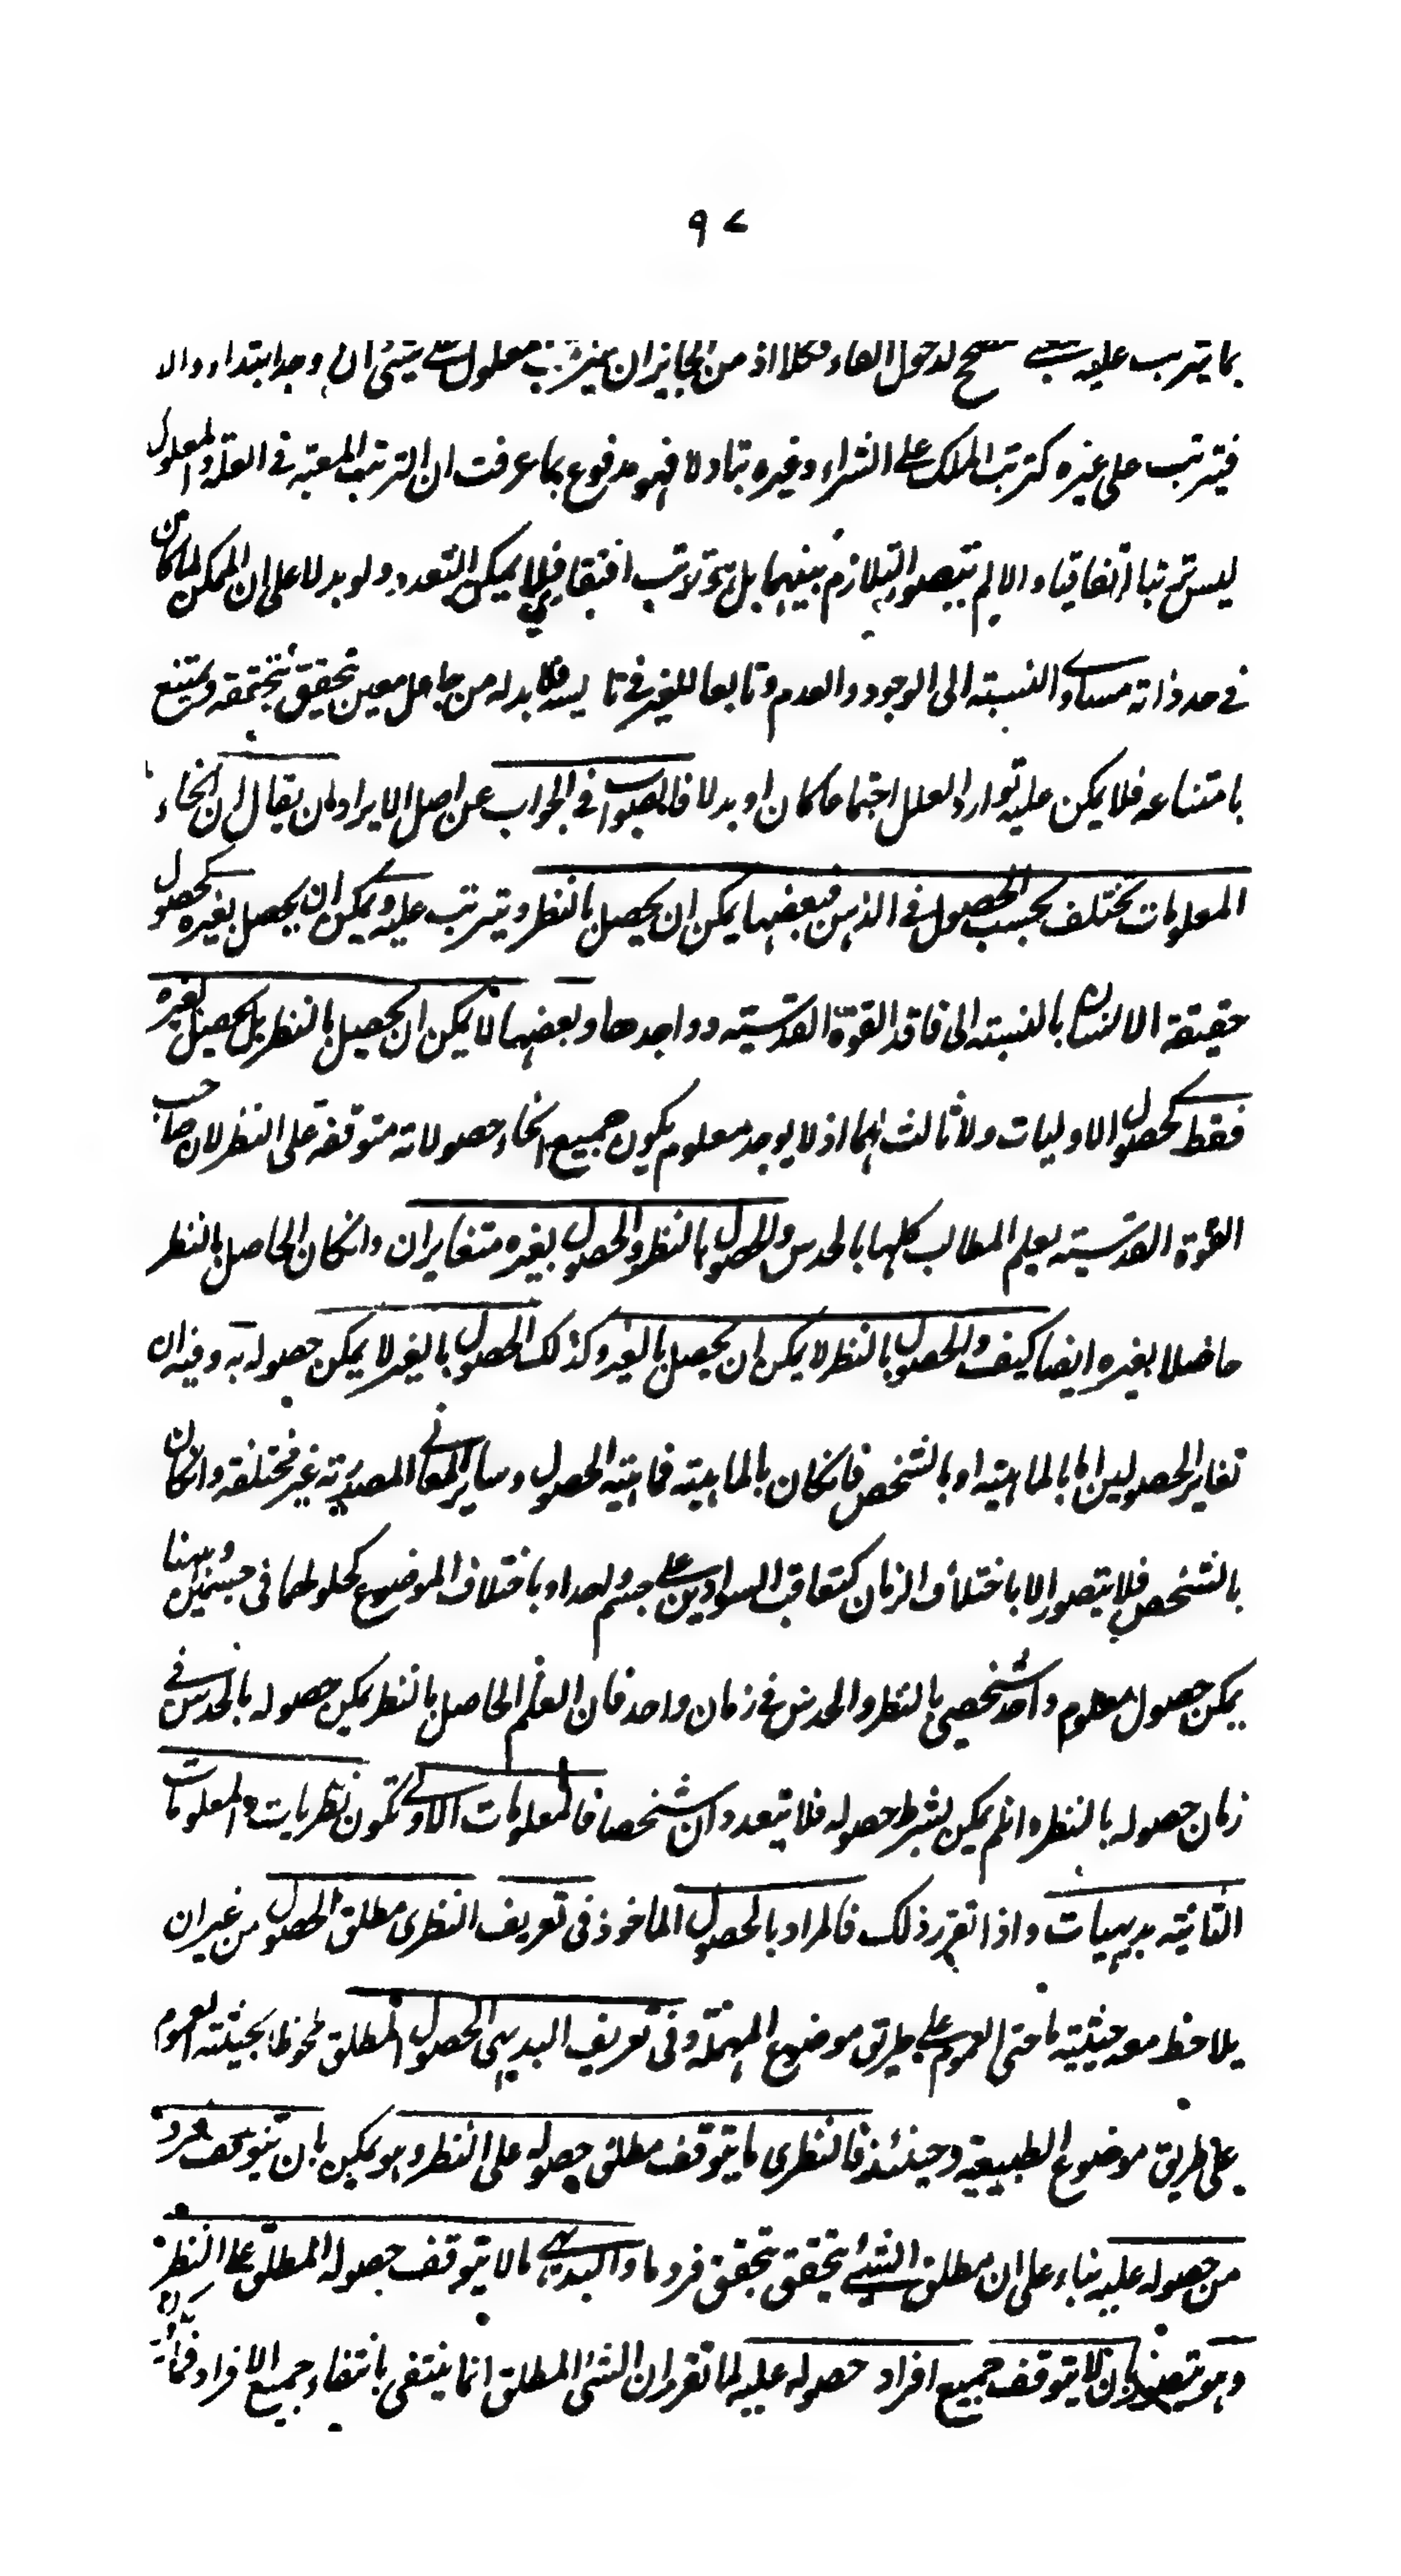 ٩٧
بما يترتب عليه شئ مصحح لدخول الفاء فكلا اذ من الجايز ان يترتب معلول على شئ ان وجد ابتداء والا
فيترتب على غيره كترتب الملك على الشراء وغيره تبادلا فهو مدفوع بما عرفت ان الترتب المعتبر فى العلة والمعلول
ليس ترتبا اتفاقيا والا لم يتصور التلازم بينهما بل هو ترتب افتقارى فلا يمكن التعدد ولو بدلا على ان الممكن لما كان
فى حد ذاته مساوى النسبته الى الوجود والعدم وتابعا للغير فى فلا بد له من جاعل معين تحقيق بتحققه ويمتنع
بامتناعه فلا يمكن عليه توارد العلل اجتماعا كان او بدلا فالصواب فى الجواب عن اصل الايراد ان يقال ان انحاء
المعلومات تختلف بحسب الحصول فى الذهن فبعضها يمكن ان يحصل بالنظر ويترتب عليه ويمكن ان يحصل بغيره كحصول
حقيقة الانسان بالنسبته الى فاقد القوة القدسيته وواجدها وبعضها لا يمكن ان يحصل بالنظر بل يحصل بغيره
فقط كحصول الاوليات ولا ثالث لهما اذ لا يوجد معلوم يكون جميع انحاء حصولاته متوقفة على النظر لان صاحب
القوة القدسيته يعلم المطالب كلها بالحدس والحصول بالنظر والحصول بغيره متغايران وانكان الحاصل بالنظر
حاصلا بغيره ايضا كيف والحصول بالنظر لا يمكن ان يحصل بالغير وكذلك الحصول بالغير لا يمكن حصوله به وفيه ان
تغاير الحصولين اما بالماهيته او بالشخص فانكان بالماهيته فماهيته الحصول وساير المعانى المصدريته غير مختلفة وانكان
بالشخص فلا يتصور الا باختلاف الزمان كتعاقب السوادين على جسم واحد او باختلاف الموضوع كحلولهما فى جسمين وههنا
يمكن حصول معلوم واحد شخصى بالنظر والحدس فى زمان واحد فان العلم الحاصل بالنظر يمكن حصوله بالحدس فى
زمان حصوله بالنظر وان لم يمكن بشرط حصوله فلا يتعددان شخصا فالمعلومات الاولى تكون نظريات والمعلومات
الثانيته بديهيات واذا تقرر ذلك فالمراد بالحصول الماخوذ فى تعريف النظرى مطلق الحصول من غير ان
يلاحظ معه حيثيته ما حتى العموم على طريق موضوع المهملة وفى تعريف البديهى الحصول المطلق ملحوظا بحيثيته العموم
على طريق موضوع الطبيعية وحينئذ فالنظرى ما يتوقف مطلق حصوله على النظر وهو يمكن بان يتوقف فرد
من حصوله عليه بناء على ان مطلق الشئ يتحقق بتحقق فرد ما والبديهى ما لا يتوقف حصوله المطلق على النظر
وهو يتصور بان لا يتوقف جميع افراد حصوله عليه لما تقرر ان الشئ المطلق انما ينتفى بانتفاء جميع الافراد